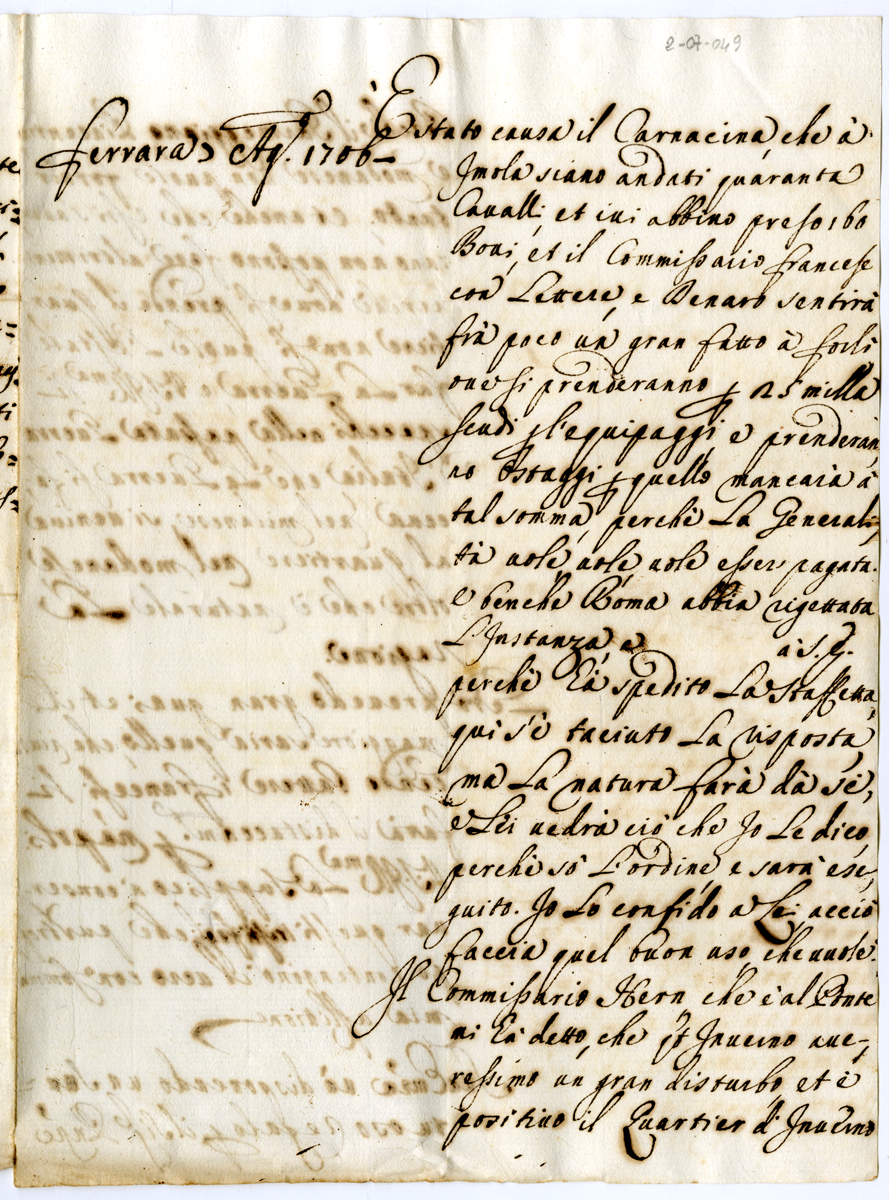 2-07-049
È stato causa il Carnacina che à
Ferrara Ag. 1706
Imola siano andati quaranta
Cavalli, et ivi abbino preso 160
Bovi, et il Commissario francese
con Lettere, e Denaro sentirà
frà poco un gran fatto à forlì
ove si prenderanno 25 milla
scudi l'equipaggi e prenderan,
no Ostaggi quello mancarà à
tal somma, perchè La Generali,
tà vole vole vole esser pagata.
e benche Roma abbia rigettata
L'Instanza, e a S. E.
perchè hà spedito La Staffetta,
quì s'è taciuto La risposta,
ma La natura farà dà sè,
e Lei vedrà ciò che Io Le dico
perchè sò L'ordine e sarà ese,
guito. Io Lo confido a Lei acciò
faccia quel buon uso, che vuole.
Il Commissario Hern che è al Ponte
mi hà detto, che Inverno ave,
ressimo un gran disturbo, et è
positivo il Quartier d'Inverno